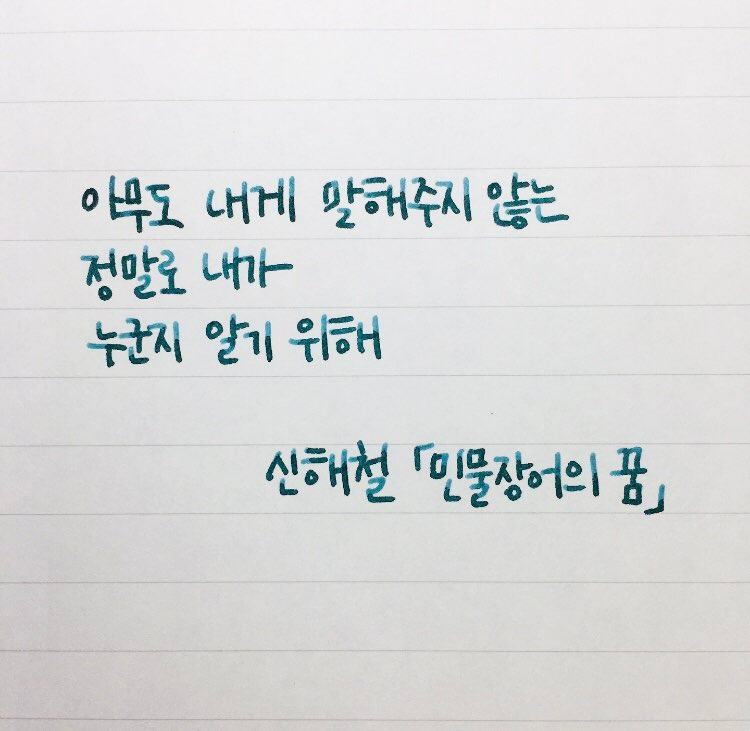 아무도 내게 말해주지 않는
정말로 내가
누군지 알기 위해
신해철 「민물장어의 꿈」